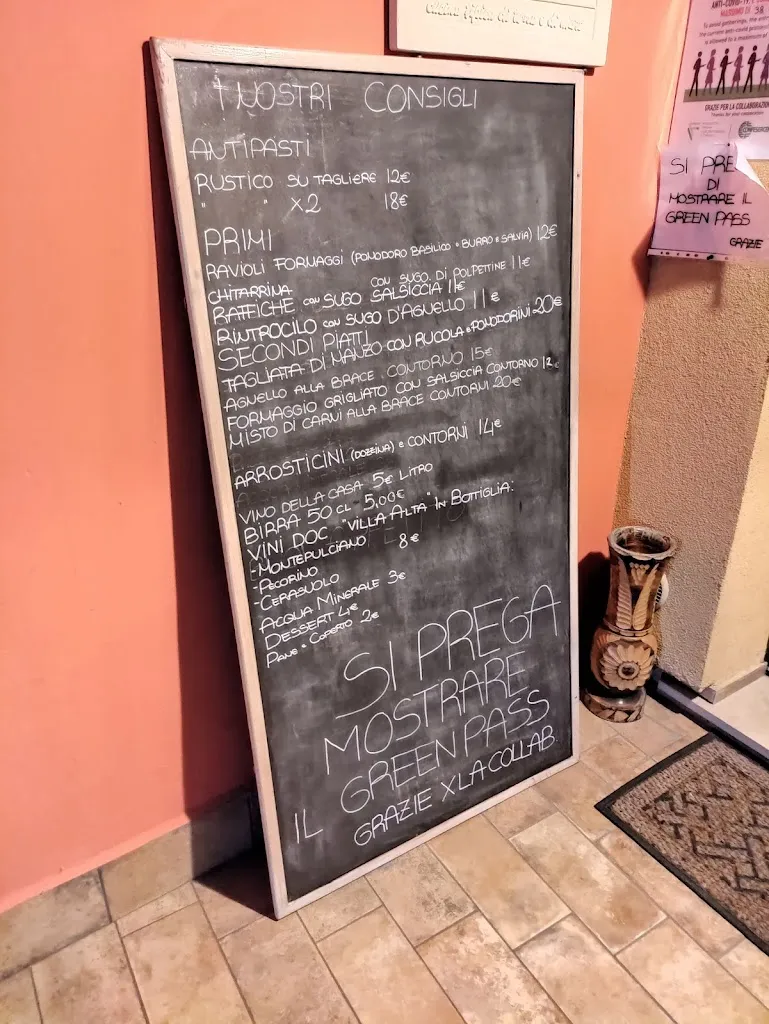 cucina tipica di terra e di mare
I NOSTRI CONSIGLI
ANTIPASTI
RUSTICO SU TAGLIERE 12€
" " X2 18€
PRIMI
RAVIOLI FORMAGGI (POMODORO BASILICO o BURRO e SALVIA) 12€
CHITARRINA CON SUGO DI POLPETTINE 11€
RATEICHE CON SUGO SALSICCIA 11€
RINTROCILO CON SUGO D'AGNELLO 11€
SECONDI PIATTI
TAGLIATA DI MANZO CON RUCOLA e POMODORINI 20€
AGNELLO ALLA BRACE CONTORNO 15€
FORMAGGIO GRIGLIATO CON SALSICCIA CONTORNO 12€
MISTO DI CARNI ALLA BRACE CONTORNI 20€
ARROSTICINI (DOZZINA) e CONTORNI 14€
VINO DELLA CASA 5€ LITRO
BIRRA 50 CL - 5,00€
VINI DOC "VILLA ALTA" IN BOTTIGLIA:
-MONTEPULCIANO 8€
-PECORINO
-CERASUOLO
ACQUA MINERALE 3€
DESSERT 4€
PANE e COPERTO 2€
SI PREGA
MOSTRARE
IL GREEN PASS
GRAZIE X LA COLLAB.
ANTI-COVID-19,
MASSIMO DI 38
To avoid gatherings, the
the current anti-covid
is allowed to a maximum of
GRAZIE PER LA COLLABORAZIONE
Thanks for your cooperation
CONFESERCENTI
SI PRE
DI
MOSTRARE IL
GREEN PASS
GRAZIE